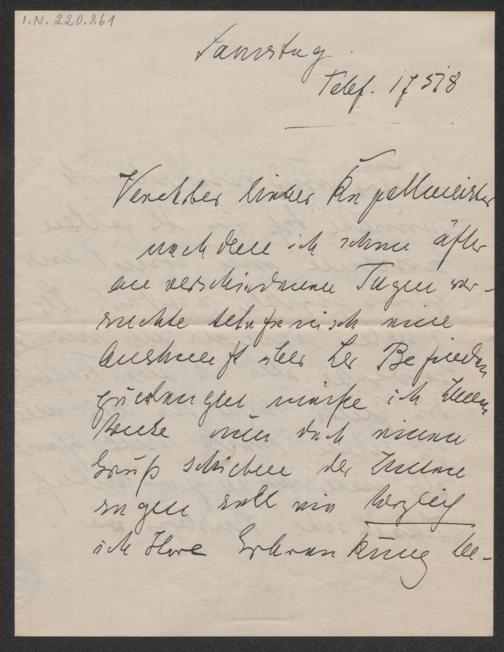 I.N. 220.861
Samstag.
Telef. 17578
Verehrter lieber Kapellmeister
nachdem ich schon öfter
an verschiedenen Tagen ver-
suchte telefonisch eine
Auskunft über Ihr Befinden
zu erlangen möchte ich Ihnen
heute nun doch einen
Gruß schicken der Ihnen
sagen soll wie herzlich
ich Ihre Erkrankung be-